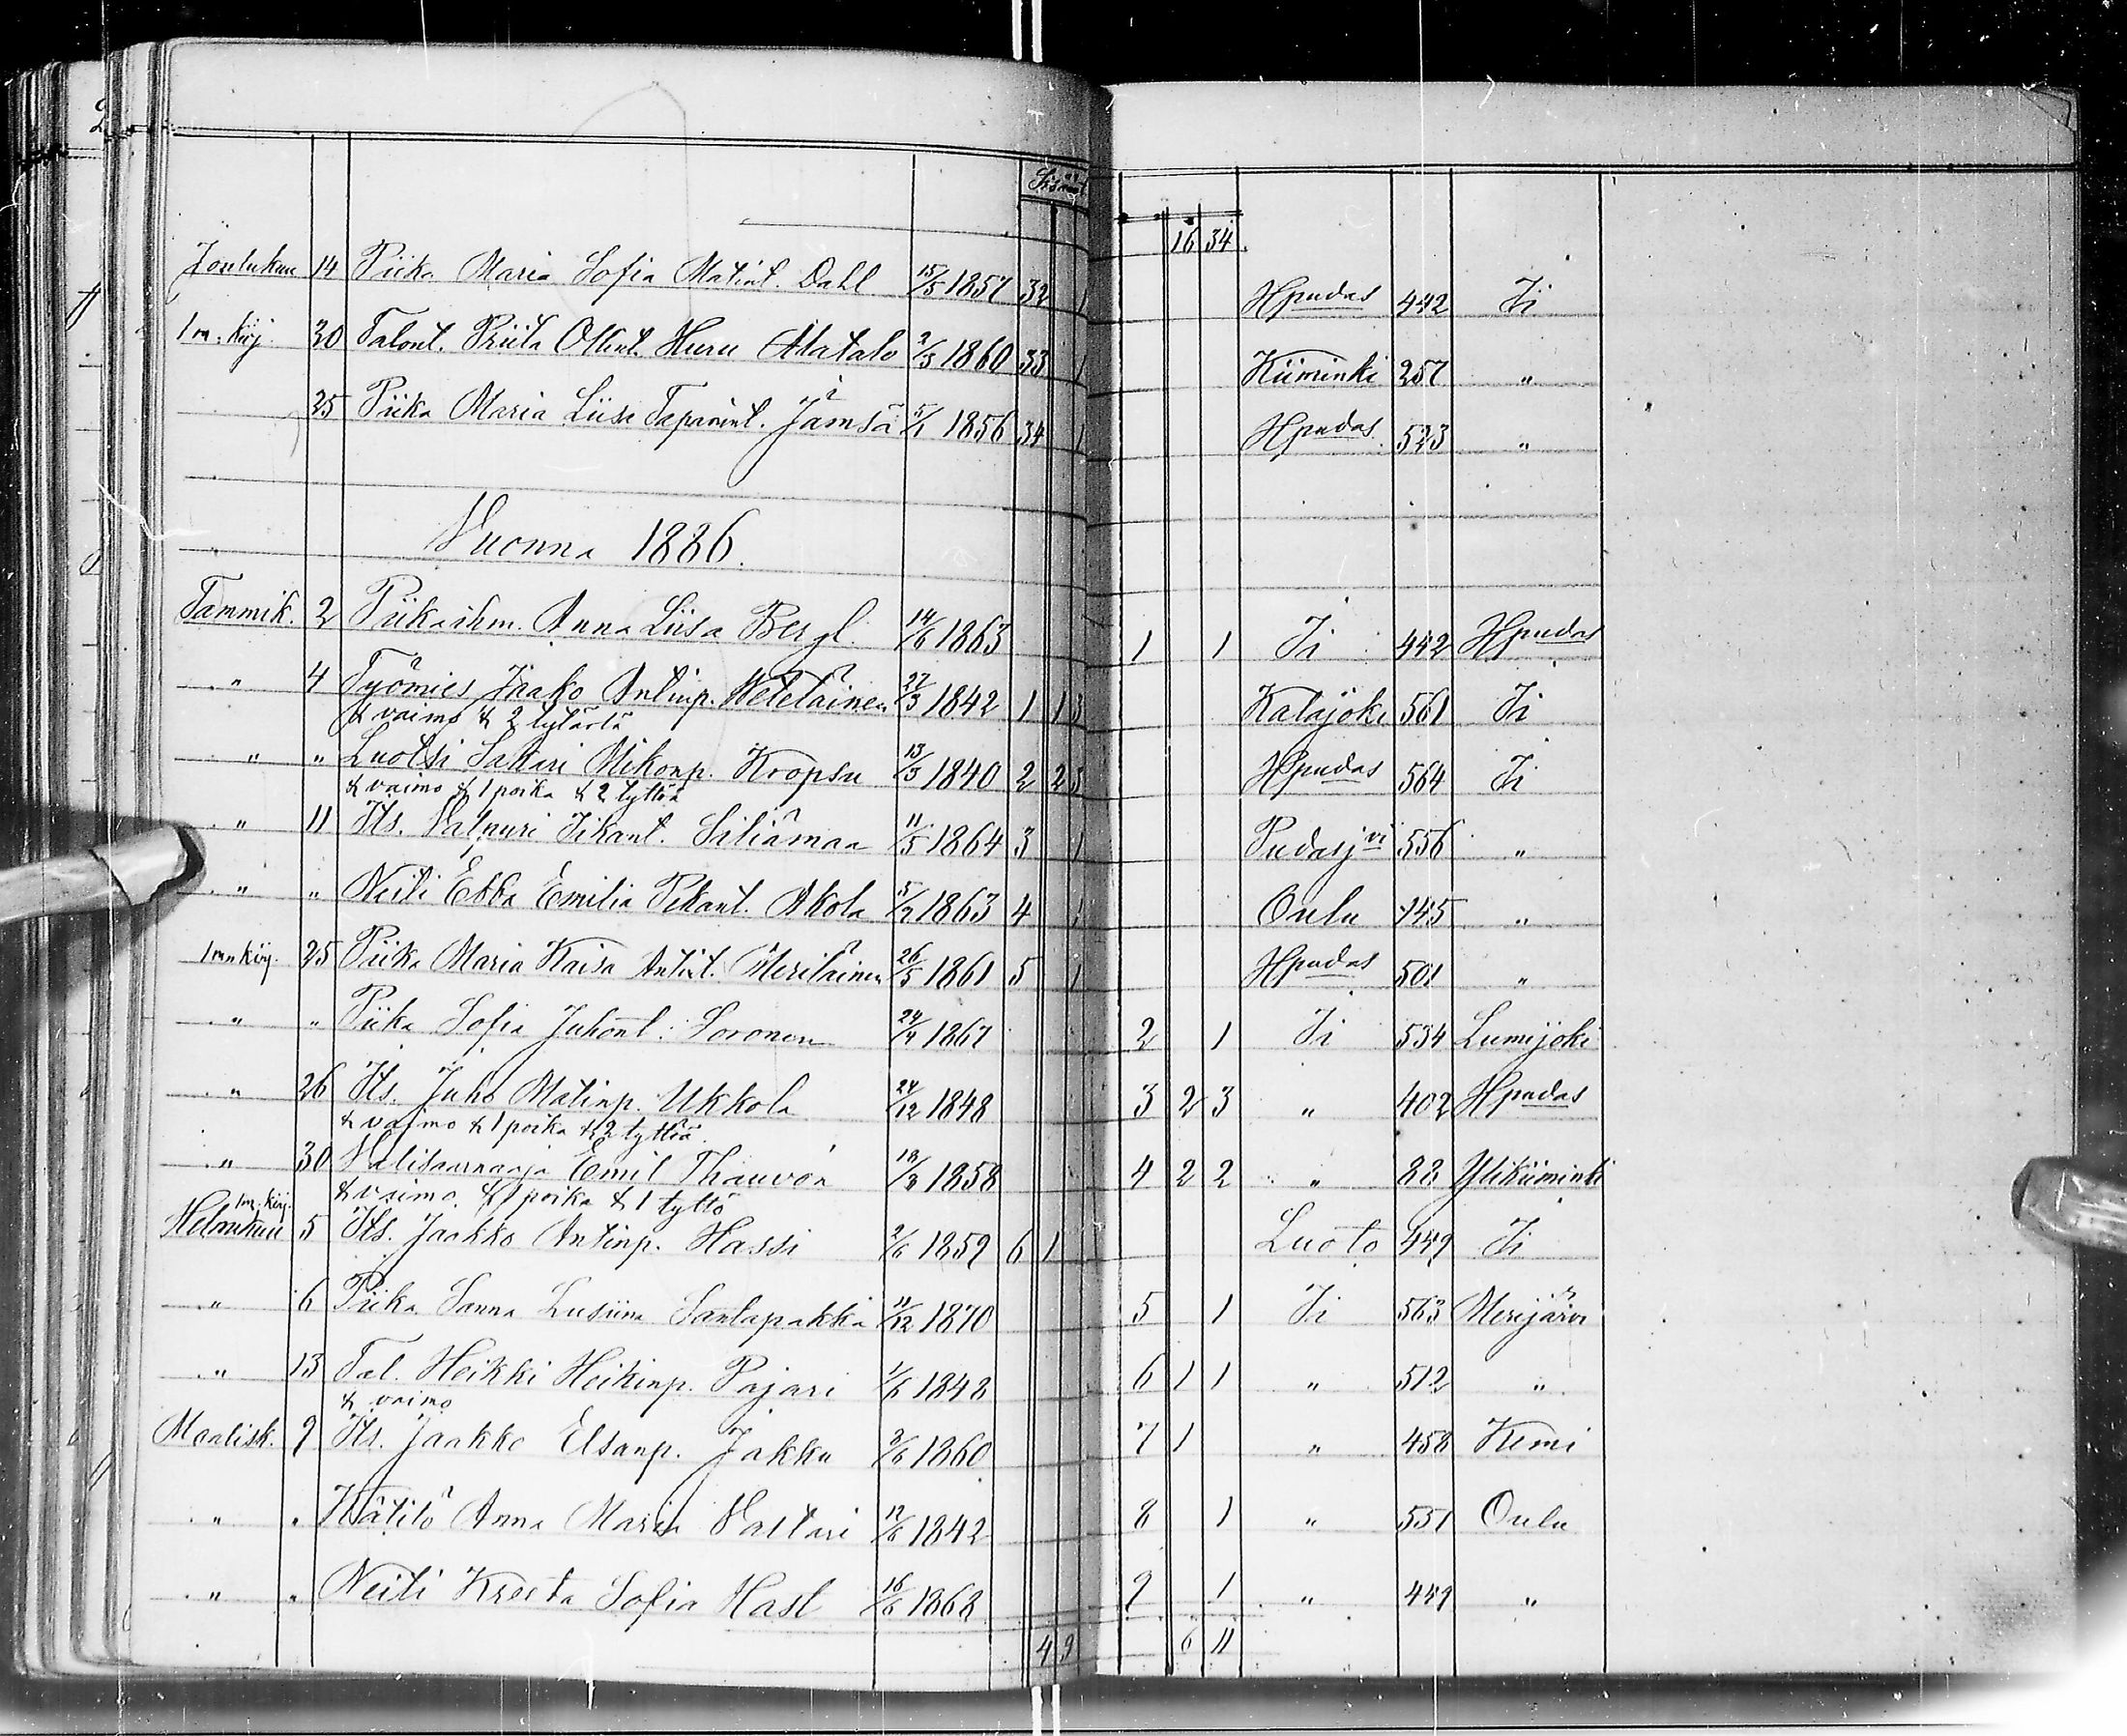 Sisään
16 34
Joulukuu 14 Piika Maria Sofia Matint. Dahl 15/5 1857 32 1 Hpudas 442 Ii
1 m. kirj. 20 Talont. Priita Ollint. Huru Alatalo 2/3 1860 33 1 Kiiminki 257 "
25 Piika Maria Liisa Tapanint. Jämsä 5/1 1856 34 1 Hpudas 523 "
Vuonna 1886.
Tammik. 2 Piikaihm. Anna Liisa Bergl. 14/6 1863 1 1 Ii 442 Hpudas
" 4 Työmies Jaako Antinp. Weteläinen 27/3 1842 1 1 3 Kalajoki 561 Ii
& vaimo & 2 tytärtä
" " Luotsi Sakari Mikonp. Kropsu 13/5 1840 2 2 3 Hpudas 564 Ii
& vaimo & 1 poika & 2 tyttöä
" 11 Its. Valpuri Iikant. Siliämaa 11/5 1864 3 1 Pudasjvi 556 "
" " Neiti Ebba Emilia Pekant. Akola 5/2 1863 4 1 Oulu 145 "
1 m kirj. 25 Piika Maria Kaisa Antint. Meriläinen 26/5 1861 5 1 Hpudas 501 "
" " Piika Sofia Juhont. Soronen 24/4 1867 2 1 Ii 534 Lumijoki
" 26 Its. Juho Matinp. Ukkola 24/12 1848 3 2 3 " 402 Hpudas
& vaimo & 1 poika & 2 tyttöä.
" 30 Emil Thauvón 18/3 1858 4 2 2 " 88 Ylikiiminki
& vaimo & 1 poika & 1 tyttö
1 m. kirj.
Helmikuu 5 Its. Jaakko Antinp. Hassi 2/6 1859 6 1 Luoto 449 Ii
" 6 Piika Sanna Lusiina Santapakka 11/12 1870 5 1 Ii 563 Merijärvi
" 13 Tal. Heikki Heikinp. Pajari 1/6 1848 6 1 1 " 512 "
& vaimo
Maalisk. 9 Its. Jaakko Elsanp. Jakku 3/6 1860 7 1 " 458 Kemi
" " Kätilö Anna Maria Vastari 12/6 1842 8 1 " 531 Oulu
" " Neiti Kreeta Sofia Hast 16/6 1868 9 1 " 449 "
4 9 6 11